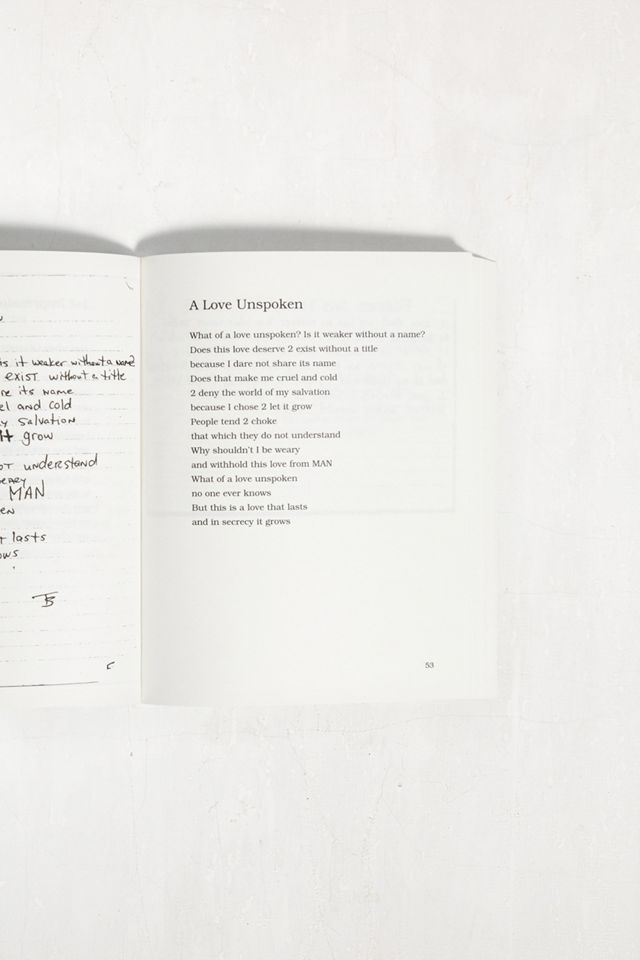 is it weaker without a name?
exist without a title
its name
and cold
salvation
grow
understand
MAN
lasts
A Love Unspoken
What of a love unspoken? Is it weaker without a name?
Does this love deserve 2 exist without a title
because I dare not share its name
Does that make me cruel and cold
2 deny the world of my salvation
because I chose 2 let it grow
People tend 2 choke
that which they do not understand
Why shouldn't I be weary
and withhold this love from MAN
What of a love unspoken
no one ever knows
But this is a love that lasts
and in secrecy it grows
53